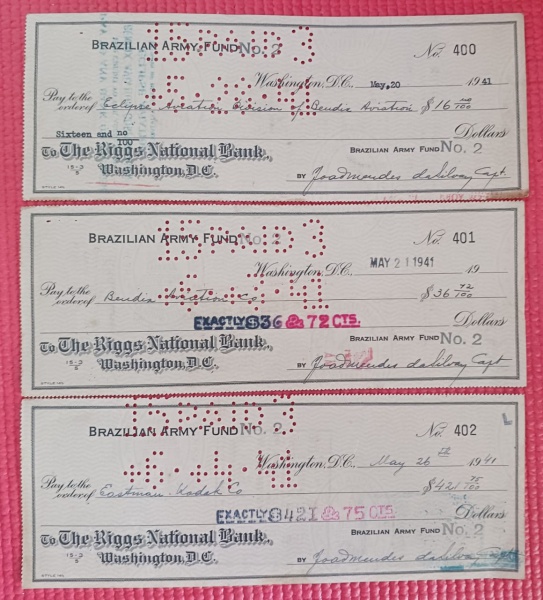 BRAZILIAN ARMY FUND No. 2 No. 400
15 PAID 3
Washington, D.C., May, 20 1941
Pay to the
order of Eclipse Aviation Division of Bendix Aviation $16 no/100
Sixteen and no/100 Dollars
To The Riggs National Bank, BRAZILIAN ARMY FUND No. 2
15-3/5 Washington, D.C. BY Capt.
STYLE 140
BRAZILIAN ARMY FUND No. 2 No. 401
15 PAID 3
Washington, D.C., MAY 21 1941 19
Pay to the
order of Bendix Aviation Co $36 72/100
EXACTLY $36 & 72 CTS. Dollars
To The Riggs National Bank, BRAZILIAN ARMY FUND No. 2
15-3/5 Washington, D.C. BY Capt
STYLE 140
15 PAID 3
BRAZILIAN ARMY FUND No. 2 No. 402 L
Washington, D.C., May 26 th 1941
Pay to the
order of Eastman Kodak Co $421 75/100
EXACTLY $421 & 75 CTS. Dollars
To The Riggs National Bank, BRAZILIAN ARMY FUND No. 2
15-3/5 Washington, D.C. BY Capt
STYLE 140